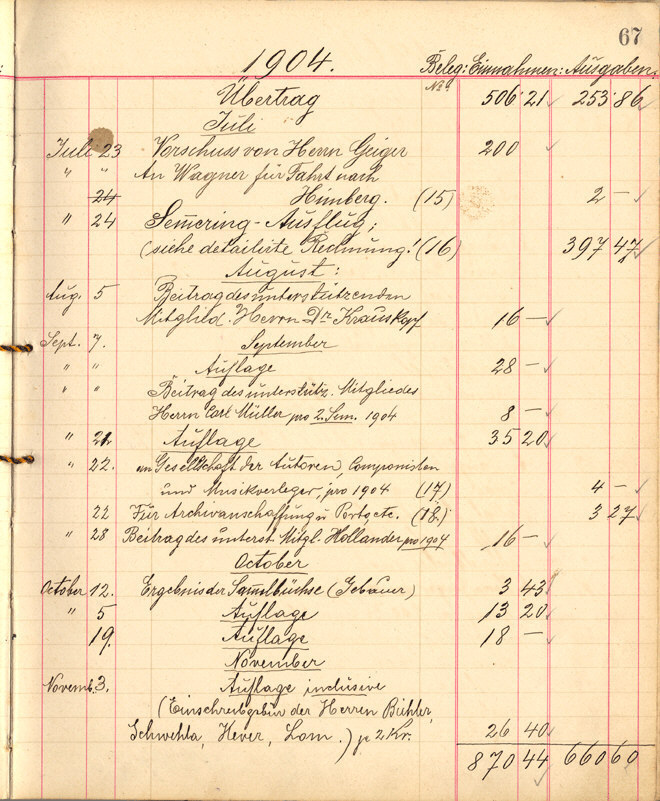 67
1904. Beleg: Einnahmen: Ausgaben:
No.
Übertrag 506 21 253 86
Juli
Juli 23 Vorschuss von Herrn Geiger 200
" " An Wagner für Fahrt nach
24 Himberg. (15) 2 —
" 24 Semering-Ausflug;
(siehe detailiste Rechnung! (16) 397 47
August:
Aug. 5 Beitrag des unterstützenden
Mitglied. Herrn Dr. Krauskopf 16 —
Sept. 7. September
" " Auflage 28 —
" " Beitrag des unterstütz. Mitgliedes
Herrn Carl Müller pro 2. Sem. 1904 8 —
" 21. Auflage 35 20
" 22. an Gesellschaft der Autoren, Componisten
und Musikverleger, pro 1904 (17) 4 —
22 Für Archivanschaffung u Porto etc. (18.) 3 27
" 28 Beitrag des unterst. Mitgl. Hollander pro 1904 16 —
October
October 12. Ergebnis der Samelbüchse (Gebauer) 3 43
" 5 Auflage 13 20
19. Auflage 18 —
November
Novemb. 3. Auflage inclusive
(Einschreibgebür der Herren Bichler,
Schwehla, Hever, Lom.) je 2 Kr. 26 40
870 44 660 60